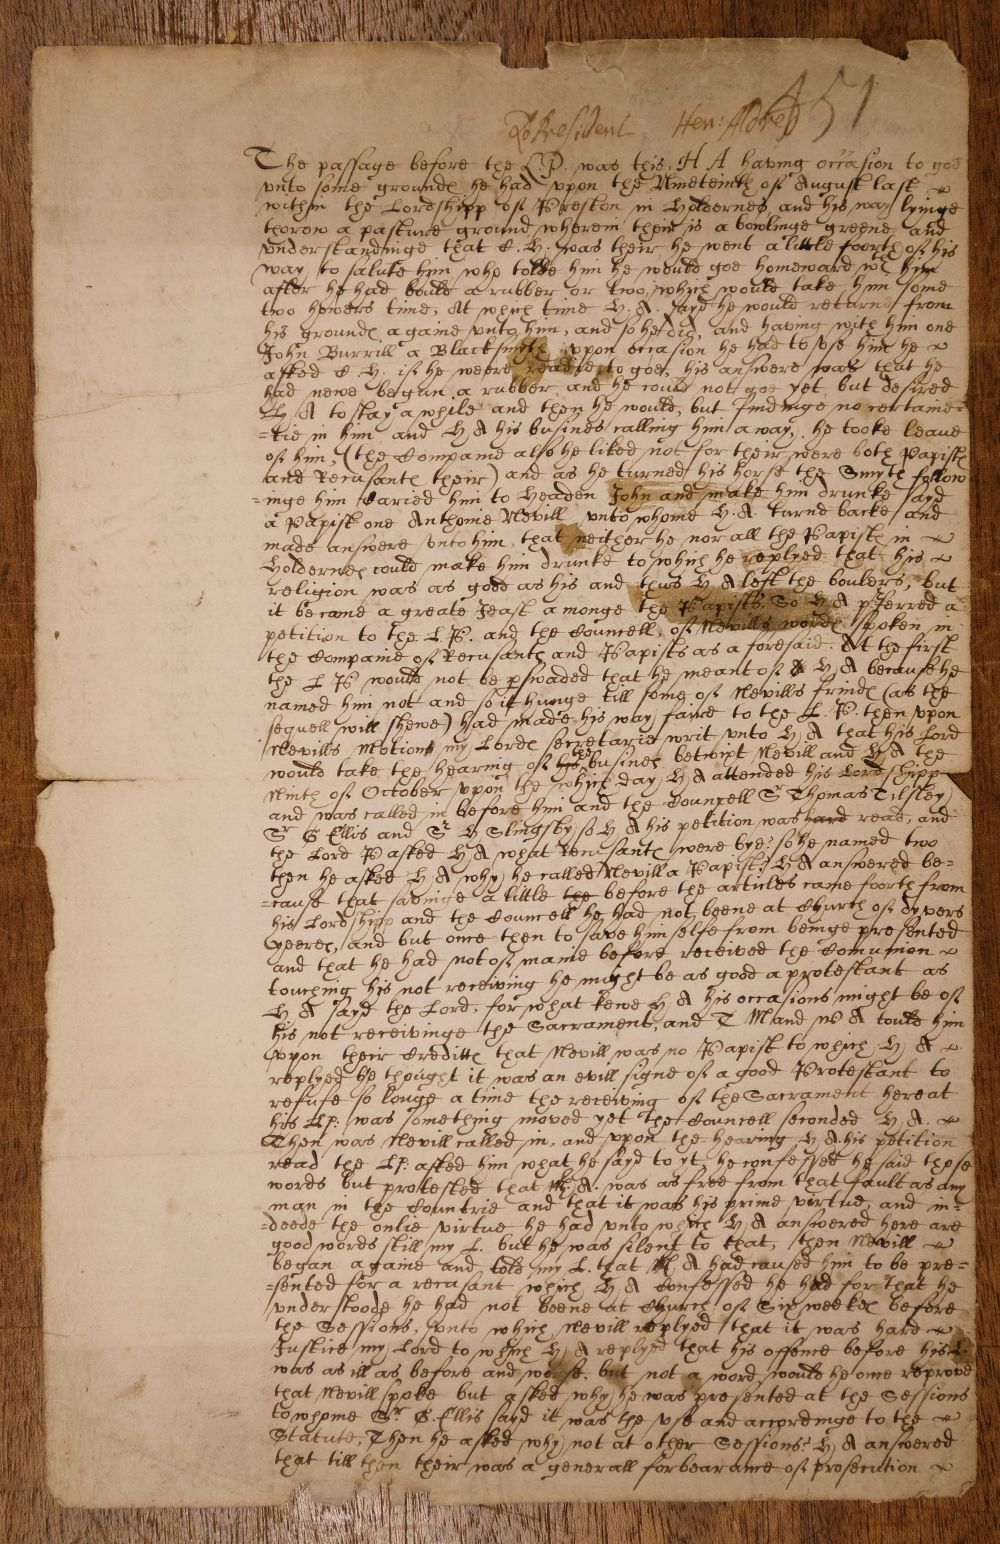 451
Ld President Hen: Aldred
The passage before the L.P. was this, H A having occasion to goe
vnto some groundes he had vpon the Nineteinth of August last
within the Lordshipp of Preston in Holdernes, and his way lyinge
thorow a pasture ground wherein their is a bowlinge greene, and
vnderstandinge that C. H. was their, he went a litle foorth of his
way to salute him who tolde him he would goe homeward wth him
after he had bould a rubber or two, which would take him some
two howers time, At which time H. A. sayd he would returne from
his groundes againe vnto him, and so he did, and having with him one
John Burrill a Blacksmyth vpon occasion he had to vse him he
asked C. H. if he weere readie to goe, his answere was that he
had newe begun a rubber and he could not goe yet, but desired
H A to stay a while and then he would, but findinge no certaine=
=tie in him, and H A his busines calling him away, he tooke leave
of him, (the Companie also he liked not for their were both Papistes
and Recusantes their) and as he turned his horse the Smyth follow
=inge him Caried him to Headen John and make him drunke sayd
a Papist one Anthonie Nevill vnto whome H. A. turnd backe and
made answere vnto him, that neither he nor all the Papistes in
Holdernes could make him drunke to which he replyed that his
religion was as good as his and thus H A left the boulers, but
it became a greate Jeast amonge the Papists. So H A pferred a
petition to the L. P. and the Councell, of Nevills wordes spoken in
the Companie of Recusantes and Papists as aforesaid. At the first
the L P would not be pswaded that he meant of H A because he
named him not and so it hunge till some of Nevills frindes (as the
sequell will shewe) had made his way faire to the L. P. then vpon
Nevills Motions my Lordes secretarie writ vnto H A that his Lord
would take the hearing of the busines betwixt Nevill and H A the
Ninth of October vpon the which day H A attended his Lordshipp
and was called in before him and the Councell Sr Thomas Tilsley
Sr G Ellis and Sr H Slingsby, so H A his petition was read, and
the Lord P asked H A what Recusantes were bye? so he named two
then he asked H A why he called Nevill a Papist? H A answered be=
=cause that savinge a little before the articles came foorth from
his Lordshipp and the Councell he had not beene at Church of dyvers
yeeres, and but once then to save himselfe from beinge presented
and that he had not of manie before received the Comunion
touching his not receiving he might be as good a protestant as
H A sayd the Lord, for what knewe H A his occasions might be of
his not receivinge the Sacrament, and T M and W A tould him
vpon their Creditts that Nevill was no Papist to which H A
replyed he thought it was an evill signe of a good Protestant to
refuse so longe a time the receiving of the Sacrament hereat
his Lp: was something moved yet the Councell seconded H A.
Then was Nevill called in, and vpon the hearing H A his petition
read the Lp: asked him what he sayd to yt, he confessed he said those
words but protested that H: A. was as free from that fault as any
man in the Countrie and that it was his prime virtue, and in=
=deede the onlie virtue he had vnto which H A answered here are
good words still my L. but he was silent to that, then Nevill
began againe and told my L. that H A had caused him to be pre=
=sented for a recusant which H A Confessed he had for that he
vnderstoode he had not beene at Church of Six weekes before
the Sessions, vnto which Nevill replyed that it was hard
Justice my Lord to which H A replyed that his offence before his L.
was as ill as before and worse, but not a word would he once reprove
that Nevill spoke but asked why he was presented at the Sessions
to whome Sr G. Ellis sayd it was the vse and accordinge to the
Statute, Then he asked why not at other Sessions? H A answered
that till then their was a generall forbearance of prosecution